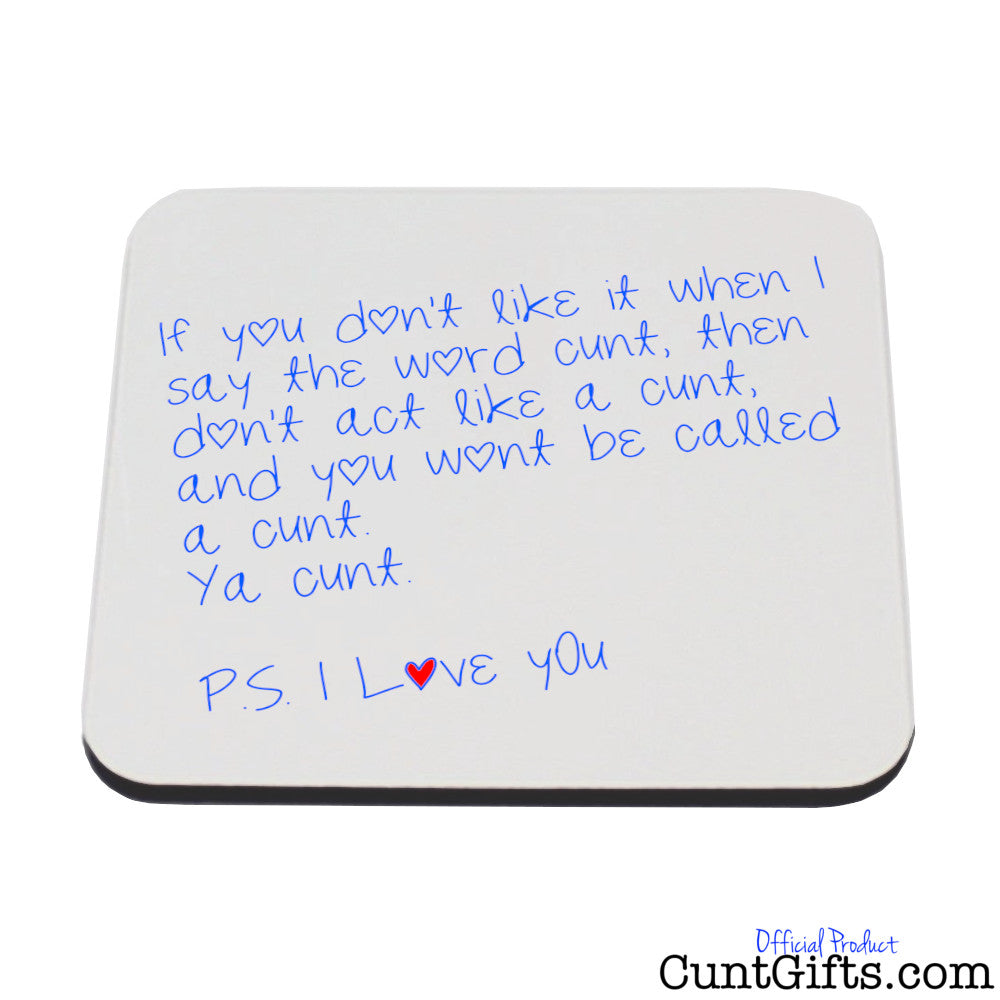 If you don't like it when I
say the word cunt, then
don't act like a cunt,
and you wont be called
a cunt.
Ya cunt.
P.S. I Love you
Official Product
CuntGifts.com